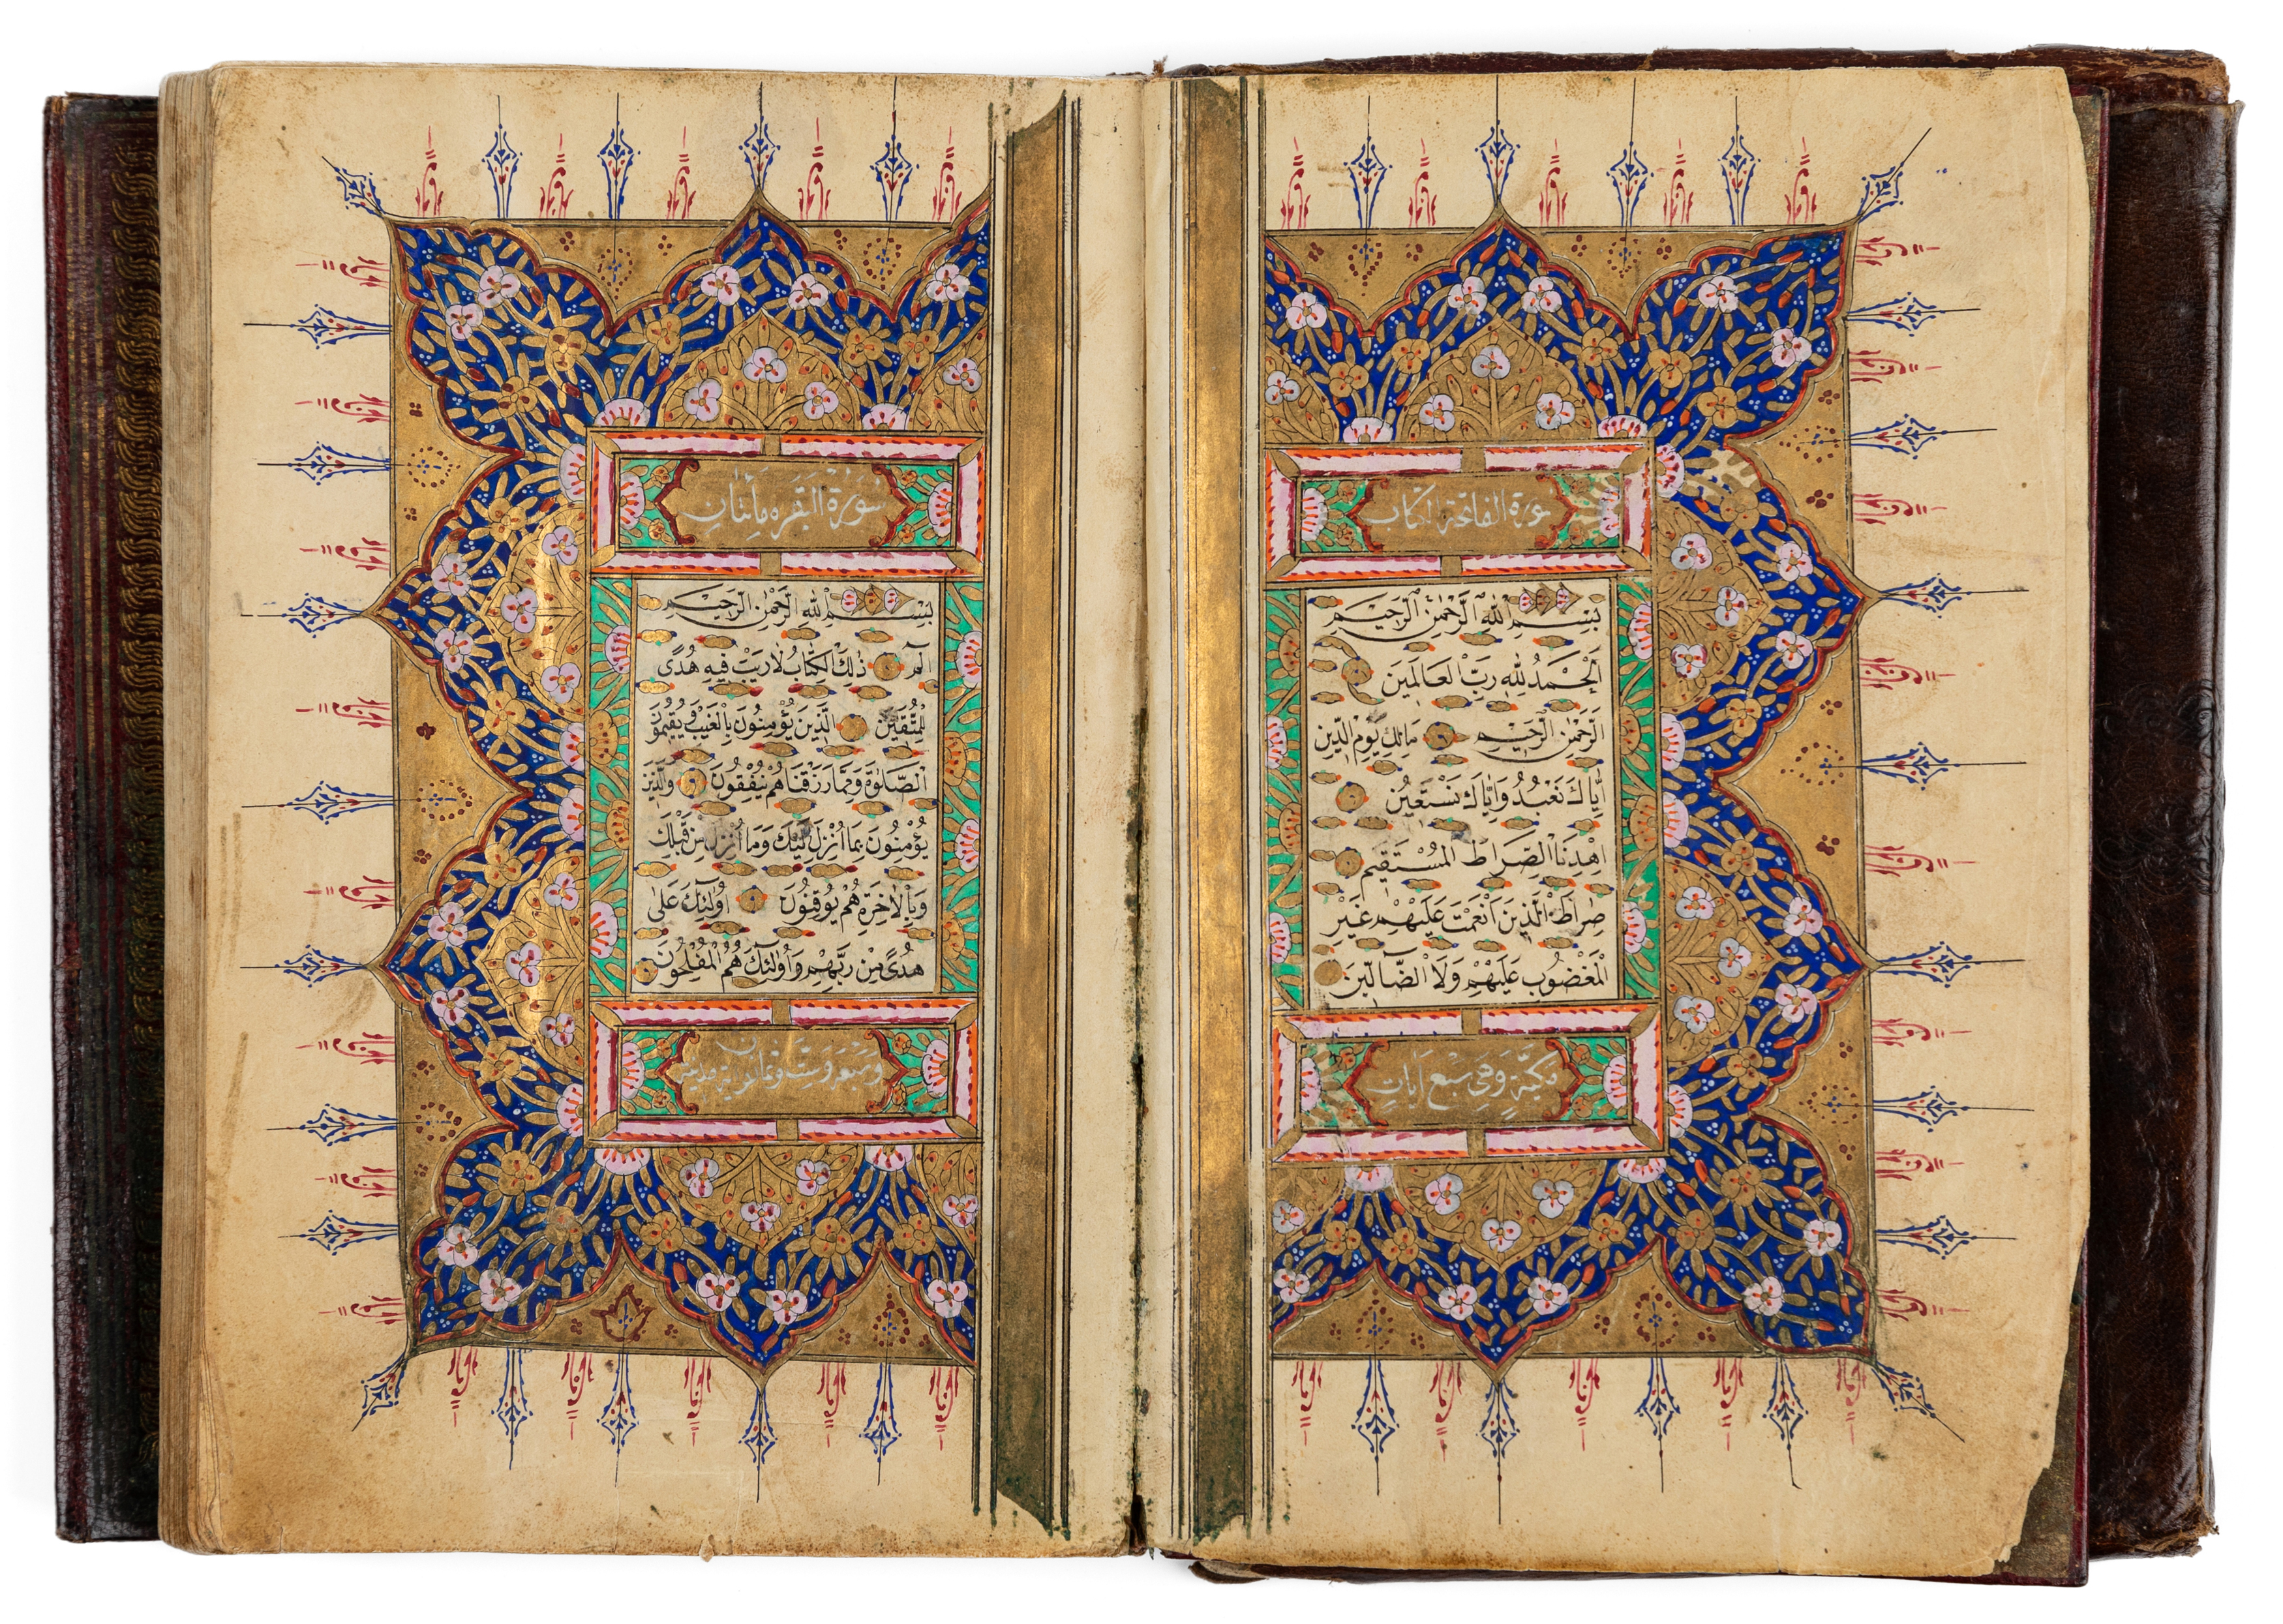 سورة الفاتحة الكتاب
بِسْمِ اللهِ الرَّحْمٰنِ الرَّحِيمِ
اَلْحَمْدُ لِلّٰهِ رَبِّ الْعَالَمِينَ
اَلرَّحْمٰنِ الرَّحِيمِ مَالِكِ يَوْمِ الدِّينِ
اِيَّاكَ نَعْبُدُ وَاِيَّاكَ نَسْتَعِينُ
اِهْدِنَا الصِّرَاطَ الْمُسْتَقِيمَ
صِرَاطَ الَّذِينَ اَنْعَمْتَ عَلَيْهِمْ غَيْرِ
الْمَغْضُوبِ عَلَيْهِمْ وَلَا الضَّالِّينَ
مكيّة وهي سبع ايات
سورة البقره مأتان
بِسْمِ اللهِ الرَّحْمٰنِ الرَّحِيمِ
الٓمٓ ذٰلِكَ الْكِتَابُ لَا رَيْبَ فِيهِ هُدًى
لِلْمُتَّقِينَ اَلَّذِينَ يُؤْمِنُونَ بِالْغَيْبِ وَيُقِيمُونَ
الصَّلٰوةَ وَمِمَّا رَزَقْنَاهُمْ يُنْفِقُونَ وَالَّذِينَ
يُؤْمِنُونَ بِمَا اُنْزِلَ اِلَيْكَ وَمَا اُنْزِلَ مِنْ قَبْلِكَ
وَبِالْاٰخِرَةِ هُمْ يُوقِنُونَ اُولٰئِكَ عَلٰى
هُدًى مِنْ رَبِّهِمْ وَاُولٰئِكَ هُمُ الْمُفْلِحُونَ